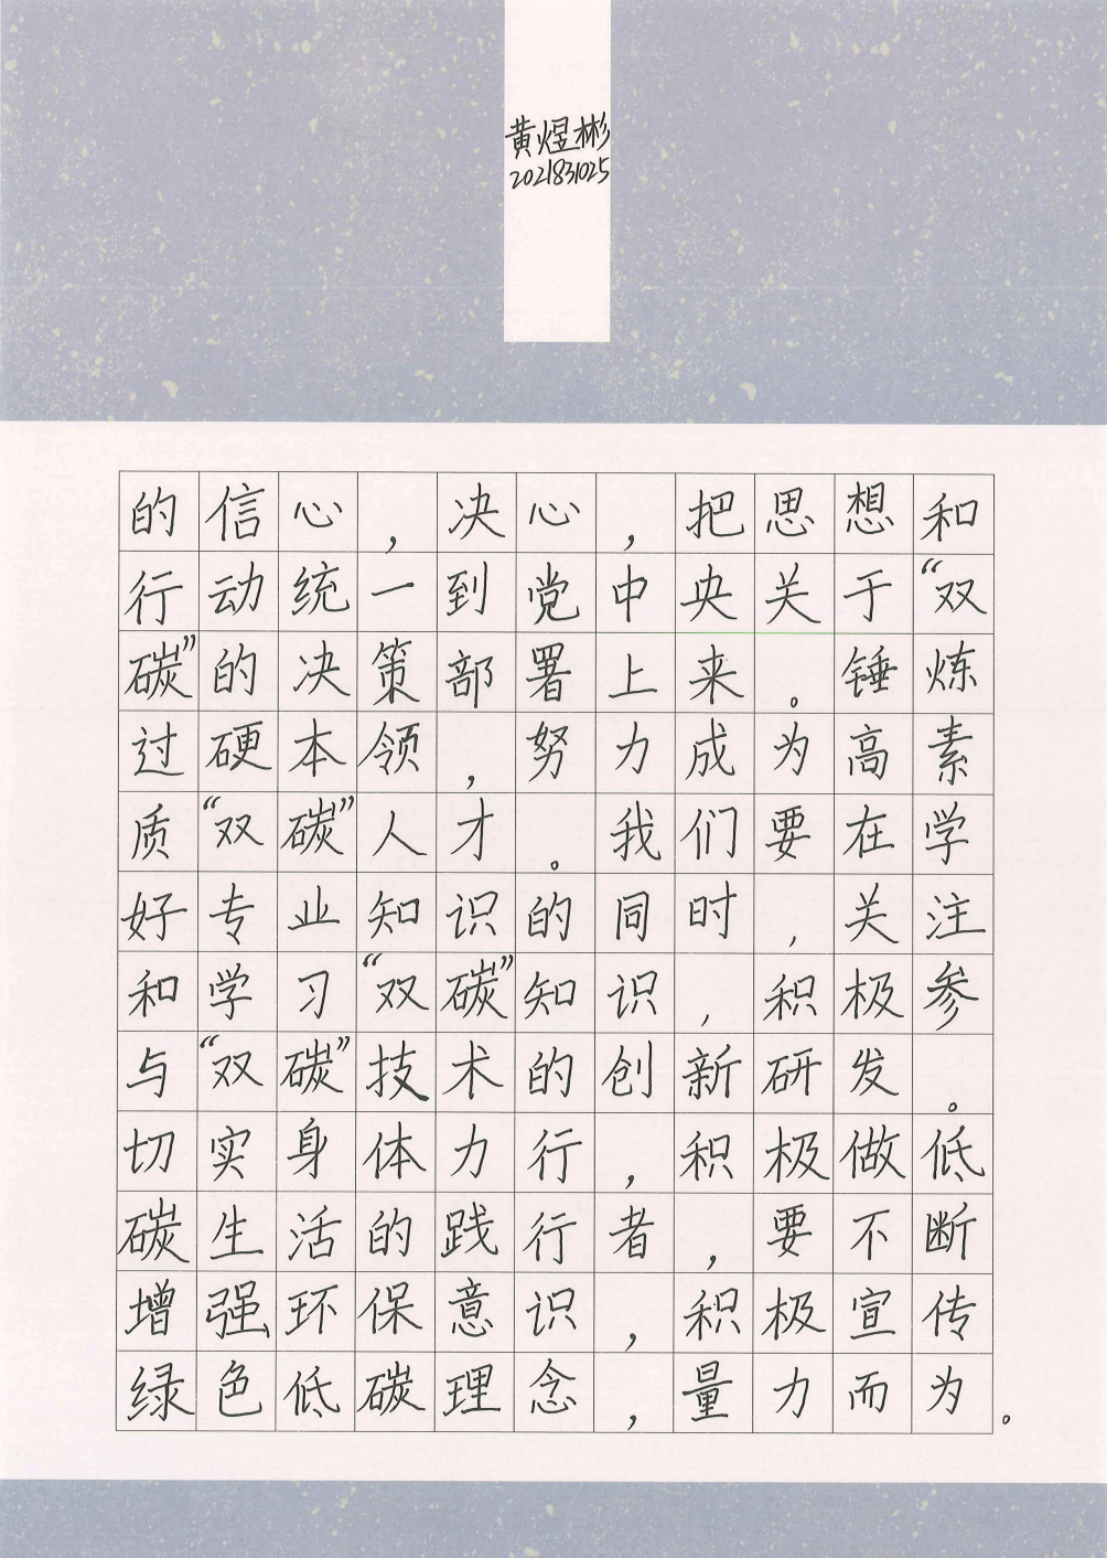 黄煜彬
2021831025
的信心，决心，把思想和
行动统一到党中央关于“双
碳”的决策部署上来。锤炼
过硬本领，努力成为高素
质“双碳”人才。我们要在学
好专业知识的同时，关注
和学习“双碳”知识，积极参
与“双碳”技术的创新研发。
切实身体力行，积极做低
碳生活的践行者，要不断
增强环保意识，积极宣传
绿色低碳理念，量力而为。